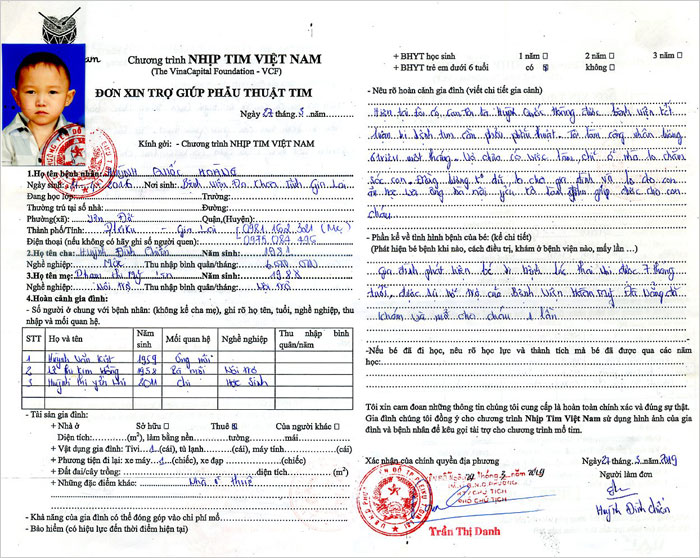 Chương trình NHỊP TIM VIỆT NAM
(The VinaCapital Foundation - VCF)
ĐƠN XIN TRỢ GIÚP PHẪU THUẬT TIM
Ngày 27 tháng 3 .năm............
Kính gửi: - Chương trình NHỊP TIM VIỆT NAM
1.Họ tên bệnh nhân: HUỲNH QUỐC HOÀNG
Ngày sinh: 2016 Nơi sinh: Bệnh viện Đa Khoa tỉnh Gia Lai
Đang học lớp: Trường:
Thường trú tại số nhà: Đường:
Phường(xã): Yên Đỗ Quận,(Huyện):
Thành phố/Tỉnh: Pleiku - Gia Lai (Mẹ)
Điện thoại (nếu không có hãy ghi số người quen):
2.Họ tên cha: Huỳnh Đình Chiến Năm sinh: 1981
Nghề nghiệp: Thu nhập bình quân/tháng: 6.000.000
3.Họ tên mẹ: Phạm Thị Mỹ Năm sinh: 1988
Nghề nghiệp: Nội trợ Thu nhập bình quân/tháng: Nội trợ
4.Hoàn cảnh gia đình:
- Số người ở chung với bệnh nhân: (không kể cha, mẹ), ghi rõ họ tên, tuổi, nghề nghiệp, thu nhập và mối quan hệ.
STT Họ và tên Năm sinh Mối quan hệ Nghề nghiệp Thu nhập bình quân/năm
1 Huỳnh Văn 1959 Ông nội
2 Lê Thị Kim Hồng 1958 Bà nội Nội trợ
3 Huỳnh Thị Yến Nhi 2011 Chị Học Sinh
- Tài sản gia đình:
+ Nhà ở Sở hữu □ Thuê ☒ Của người khác □
Diện tích:............(m²), làm bằng nền............tường:............mái............
+ Vật dụng gia đình: Tivi..1..(cái), tủ lạnh............(cái), máy tính............(cái)
+ Phương tiện đi lại: xe máy..1..(chiếc), xe đạp ............(chiếc)
+ Đất đai/cây trồng: ............diện tích............(m²)
+ Những đặc điểm khác: Nhà ở thuê
- Khả năng của gia đình có thể đóng góp vào chi phí mổ.
- Bảo hiểm (có hiệu lực đến thời điểm hiện tại)
+ BHYT học sinh 1 năm □ 2 năm □ 3 năm □
+ BHYT trẻ em dưới 6 tuổi có ☒ không □
- Nêu rõ hoàn cảnh gia đình (viết chi tiết gia cảnh)
Hiện tại tôi có con tên là Huỳnh Quốc Hoàng được bệnh viện kết
luận bị bệnh tim cần phẫu thuật. Tôi làm công nhân lương
6 triệu một tháng. Vợ chưa có việc làm chỉ ở nhà là chăm
sóc con. Đồng lương
cháu
- Phần kể về tình hình bệnh của bé: (kể chi tiết)
(Phát hiện bệnh khi nào, cách điều trị, khám ở bệnh viện nào, mấy lần ...)
Gia đình phát hiện bé bị bệnh lúc được 7 tháng
tuổi, được của Bệnh Viện Hoàn Mỹ Đà Nẵng đã
khám và mổ cho cháu 1 lần
-Nếu bé đã đi học, nêu rõ học lực và thành tích mà bé đã được qua các năm học:
Tôi xin cam đoan những thông tin chúng tôi cung cấp là hoàn toàn chính xác và đúng sự thật. Gia đình chúng tôi đồng ý cho chương trình Nhịp Tim Việt Nam sử dụng hình ảnh của gia đình và bệnh nhân để kêu gọi tài trợ cho chương trình mổ tim.
Xác nhận của chính quyền địa phương
Ngày 27 tháng 3 .năm 2019
Người làm đơn
PHÓ CHỦ TỊCH
Trần Thị Danh
Huỳnh Đình Chiến